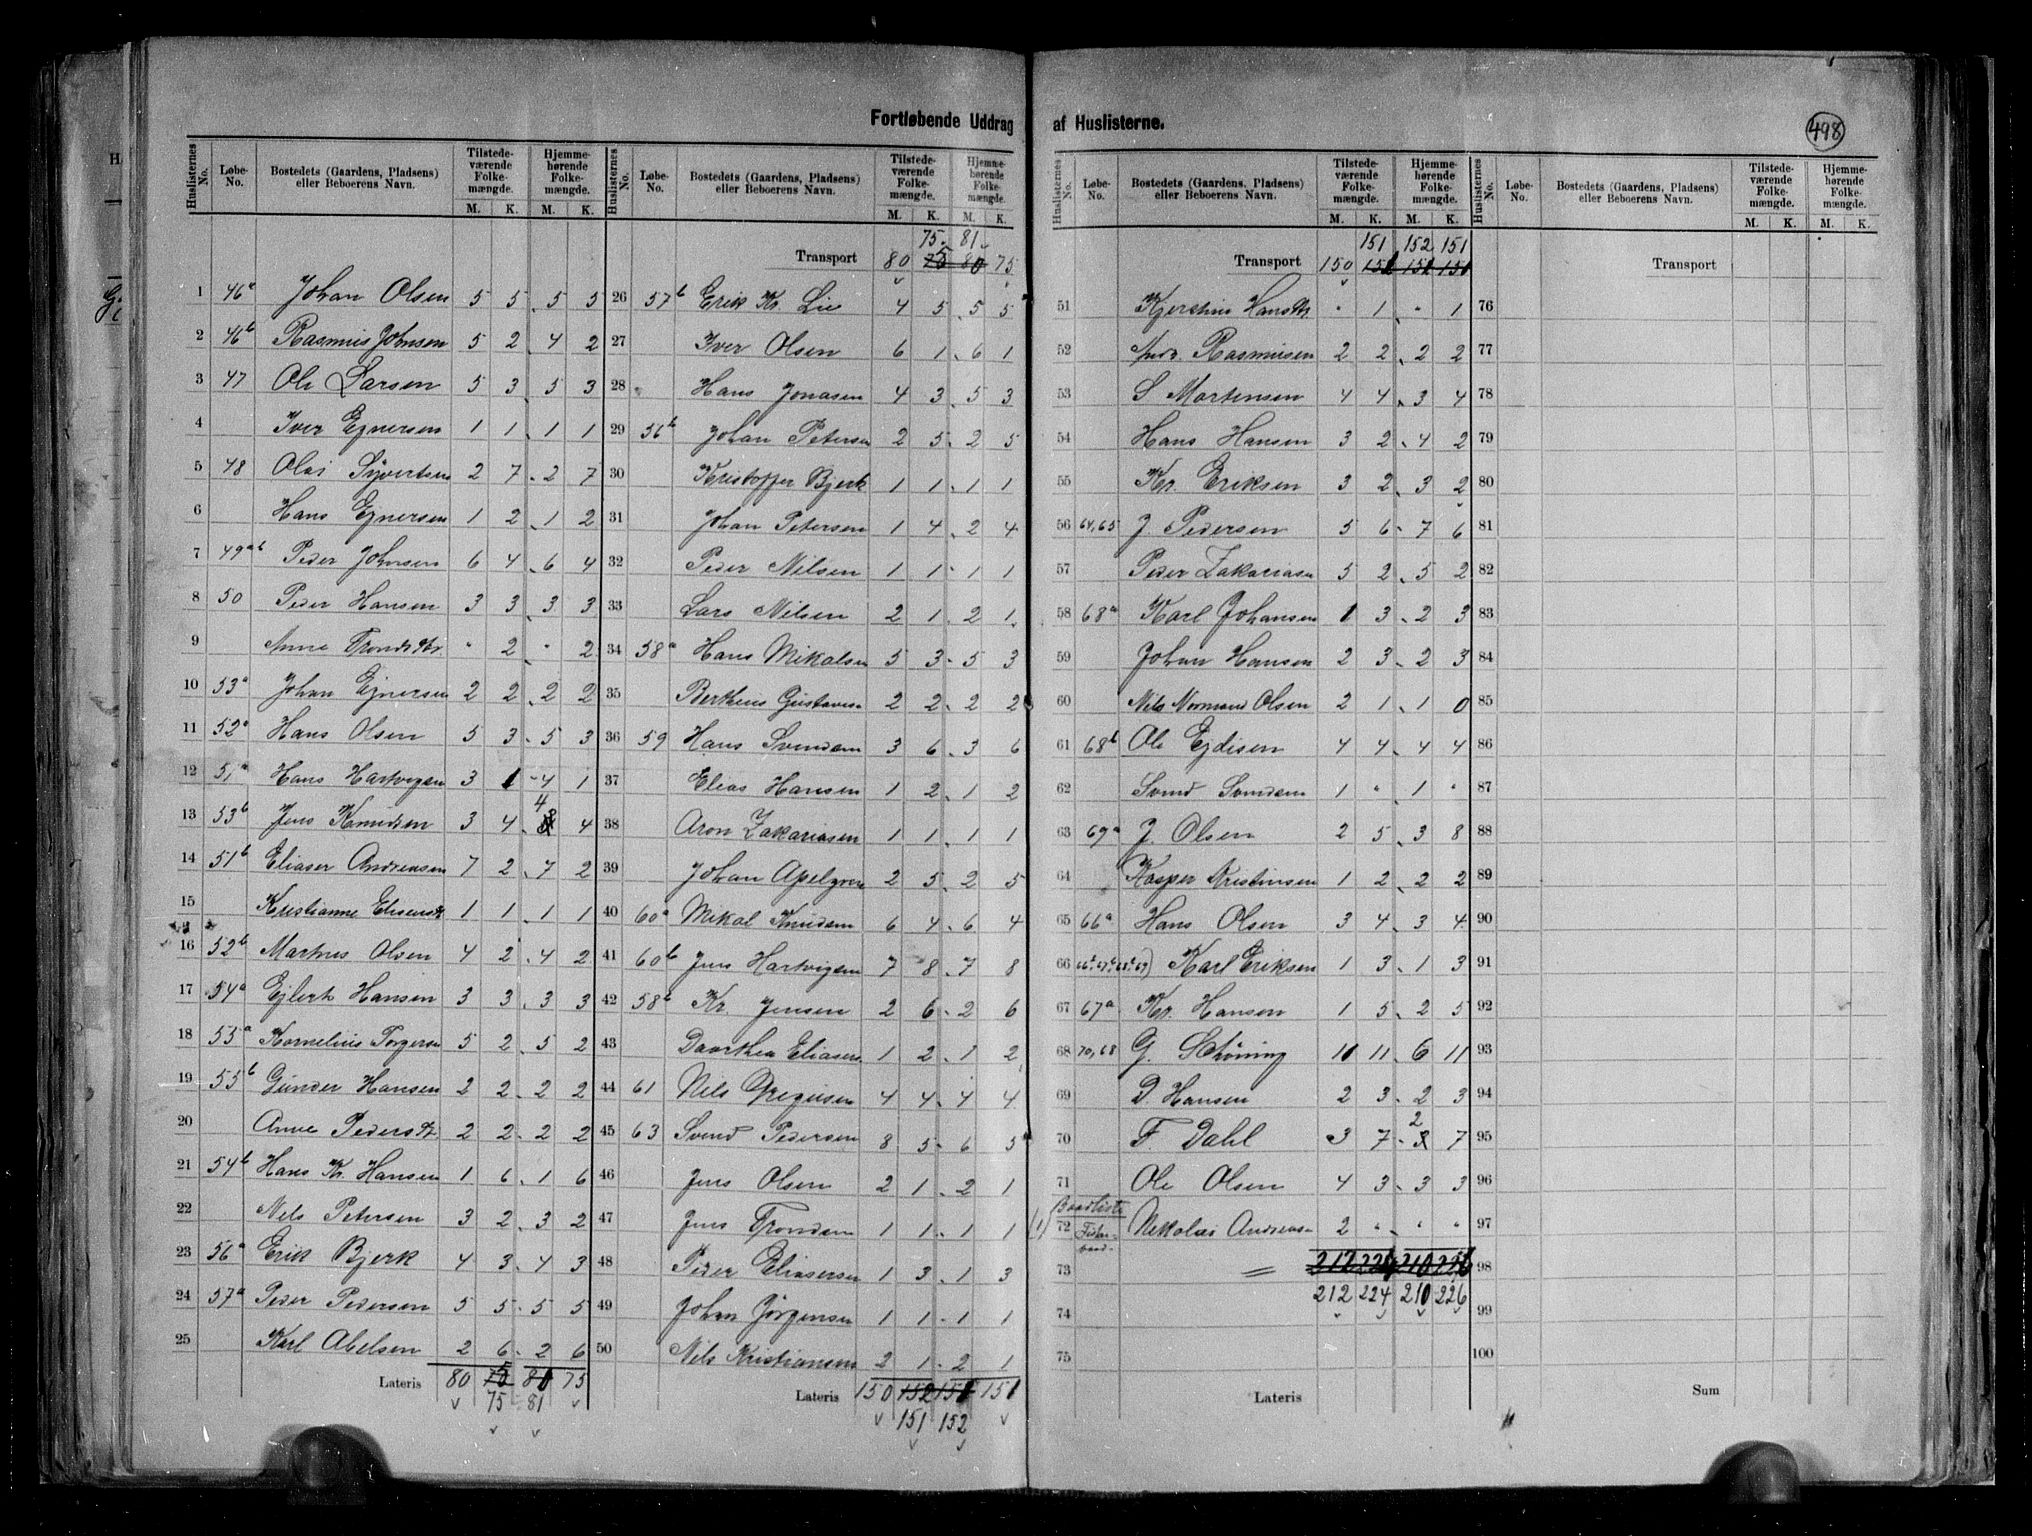 Fortløbende Uddrag af Huslisterne.
498
Huslisternes No. Løbe-No. Bostedets (Gaardens, Pladsens) eller Beboerens Navn. Tilstedeværende Folkemængde. M. K. Hjemmehørende Folkemængde. M. K.
1 46a Johan Olsen 5 5 5 5
2 46b Rasmus Johnsen 5 2 4 2
3 47 Ole Larsen 5 3 5 3
4 Iver Ejnersen 1 1 1 1
5 48 Olai Syvertsen 2 7 2 7
6 Hans Ejnersen 1 2 1 2
7 49ab Peder Johnsen 6 4 6 4
8 50 Peder Hansen 3 3 3 3
9 Anne Trondsdtr. " 2 " 2
10 53a Johan Ejnersen 2 2 2 2
11 52a Hans Olsen 5 3 5 3
12 51a Hans Hartvigsen 3 1 4 1
13 53b Jens Knudsen 3 4 4 4
14 51b Eliaser Andreasen 7 2 7 2
15 Kristianne 1 1 1 1
16 52b Martnus Olsen 4 2 4 2
17 54a Ejlert Hansen 3 3 3 3
18 55a Kornelius Torgersen 5 2 5 2
19 55b Gunder Hansen 2 2 2 2
20 Anne Pedersdtr. 2 2 2 2
21 54b Hans Kr. Hansen 1 6 1 6
22 Nels Petersen 3 2 3 2
23 56a Erik Bjerk 4 3 4 3
24 57a Peder Pedersen 5 5 5 5
25 Karl Abelsen 2 6 2 6
Lateris 80 75 80 75
75 81
Huslisternes No. Løbe-No. Bostedets (Gaardens, Pladsens) eller Beboerens Navn. Tilstedeværende Folkemængde. M. K. Hjemmehørende Folkemængde. M. K.
75 81
Transport 80 75 80 75
26 57b Erik Kr. Lie 4 5 5 5
27 Iver Olsen 6 1 6 1
28 Hans Jonasen 4 3 5 3
29 56b Johan Petersen 2 5 2 5
30 Kristoffer Bjerk 1 1 1 1
31 Johan Petersen 1 4 2 4
32 Peder Nilsen 1 1 1 1
33 Lars Nilsen 2 1 2 1
34 58a Hans Mikalsen 5 3 5 3
35 Bertheus Gustavs. 2 2 2 2
36 59 Hans Svendsen 3 6 3 6
37 Elias Hansen 1 2 1 2
38 Aron Zakariasen 1 1 1 1
39 Johan Apelgren 2 5 2 5
40 60a Mikal Knudsen 6 4 6 4
41 60b Jens Hartvigsen 7 8 7 8
42 58b Kr. Jensen 2 6 2 6
43 Daarthea Eliasen 1 2 1 2
44 61 Nils 4 4 4 4
45 63 Svend Pedersen 8 5 6 5
46 Jens Olsen 2 1 2 1
47 Jens Trondsen 1 1 1 1
48 Peder Eliasersen 1 3 1 3
49 Johan Jörgensen 1 1 1 1
50 Nils Kristiansen 2 1 2 1
Lateris 150 152 151 151
151 152
Huslisternes No. Løbe-No. Bostedets (Gaardens, Pladsens) eller Beboerens Navn. Tilstedeværende Folkemængde. M. K. Hjemmehørende Folkemængde. M. K.
151 152 151
Transport 150 152 152 151
51 Kjerstine Hansdtr. " 1 " 1
52 Andr. Rasmusen 2 2 2 2
53 S Mortensen 4 4 3 4
54 Hans Hansen 3 2 4 2
55 Kr. Eriksen 3 2 3 2
56 64,65 J. Pedersen 5 6 7 6
57 Peder Zakariasen 5 2 5 2
58 68a Karl Johansen 1 3 2 3
59 Johan Hansen 2 3 2 3
60 Nils Normand Olsen 2 1 1 0
61 68b Ole Ejdisen 4 4 4 4
62 Svend Svendsen 1 " 1 "
63 69a J. Olsen 2 5 3 8
64 Kasper Kristinsen 1 2 2 2
65 66a Hans Olsen 3 4 3 4
66 Karl Eriksen 1 3 1 3
67 67a Kr. Hansen 1 5 2 5
68 70,68 G. Schöning 10 11 6 11
69 D. Hansen 2 3 2 3
70 F. Dahl 3 7 2 7
71 Ole Olsen 4 3 3 3
Baadliste
72 Fiskerbaad Nikolai Andreas. 2 " " "
73 212 224 210 226
74 212 224 210 226
75
Lateris
Huslisternes No. Løbe-No. Bostedets (Gaardens, Pladsens) eller Beboerens Navn. Tilstedeværende Folkemængde. M. K. Hjemmehørende Folkemængde. M. K.
Transport
76
77
78
79
80
81
82
83
84
85
86
87
88
89
90
91
92
93
94
95
96
97
98
99
100
Sum